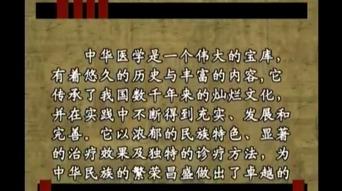 中华医学是一个伟大的宝库，
有着悠久的历史与丰富的内容，它
传承了我国数千年来的灿烂文化，
并在实践中不断得到充实、发展和
完善。它以浓郁的民族特色、显著
的治疗效果及独特的诊疗方法，为
中华民族的繁荣昌盛做出了卓越的